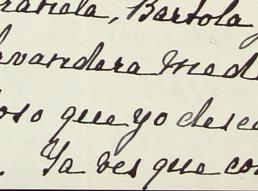 raniela, Bartola y
levandera Made
oso que yo desea
. Ya ves que con